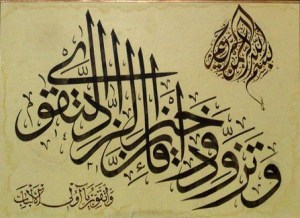 بسم الله الرحمن الرحيم
وتزودوا فإن خير الزاد التقوى
واتقون يا أولي الألباب